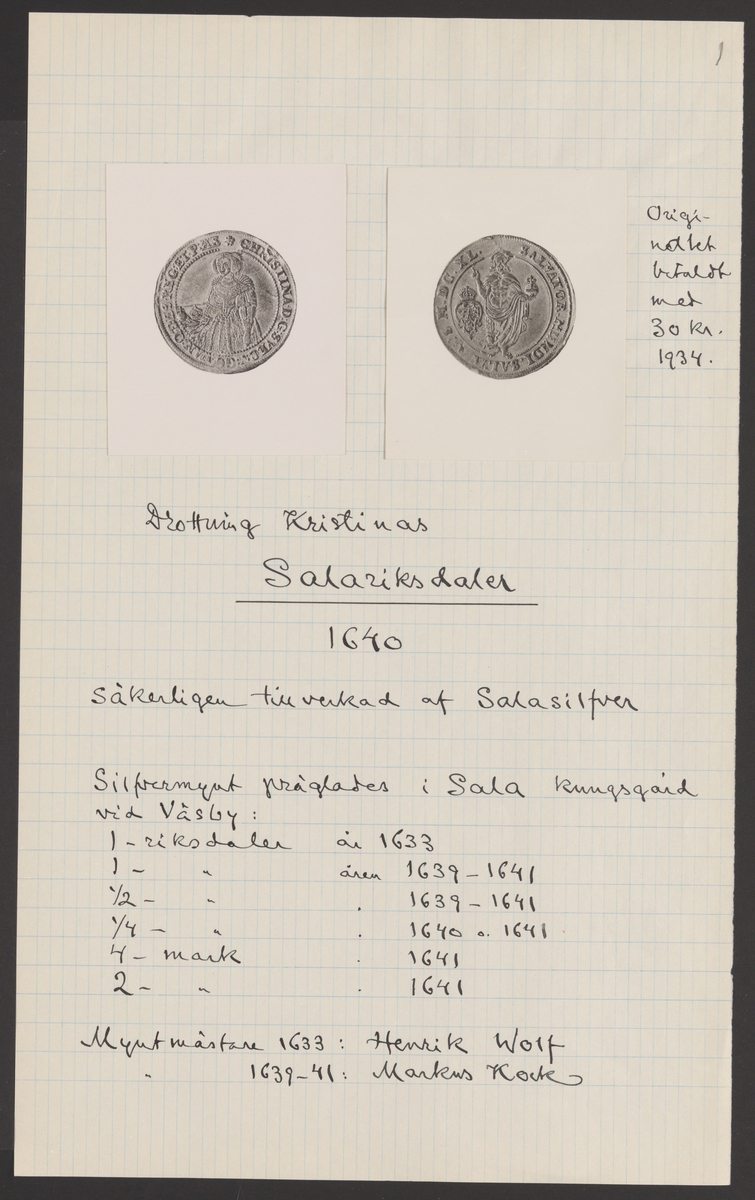 1
CHRISTINA·D·G·SVE
SALVATOR MUNDI SALVA
M·DC·XL·
Origi-
nalet
betaldt
med
30 kr.
1934.
Drottning Kristinas
Salariksdaler
1640
Säkerligen tillverkad af Salasilfver
Silfvermynt präglades i Sala kungsgård
vid Väsby:
1 - riksdaler år 1633
1 - " åren 1639 - 1641
1/2 - " . 1639 - 1641
1/4 - " . 1640 o. 1641
4 - mark . 1641
2 - " . 1641
Myntmästare 1633: Henrik Wolf
" 1639-41: Markus Kock